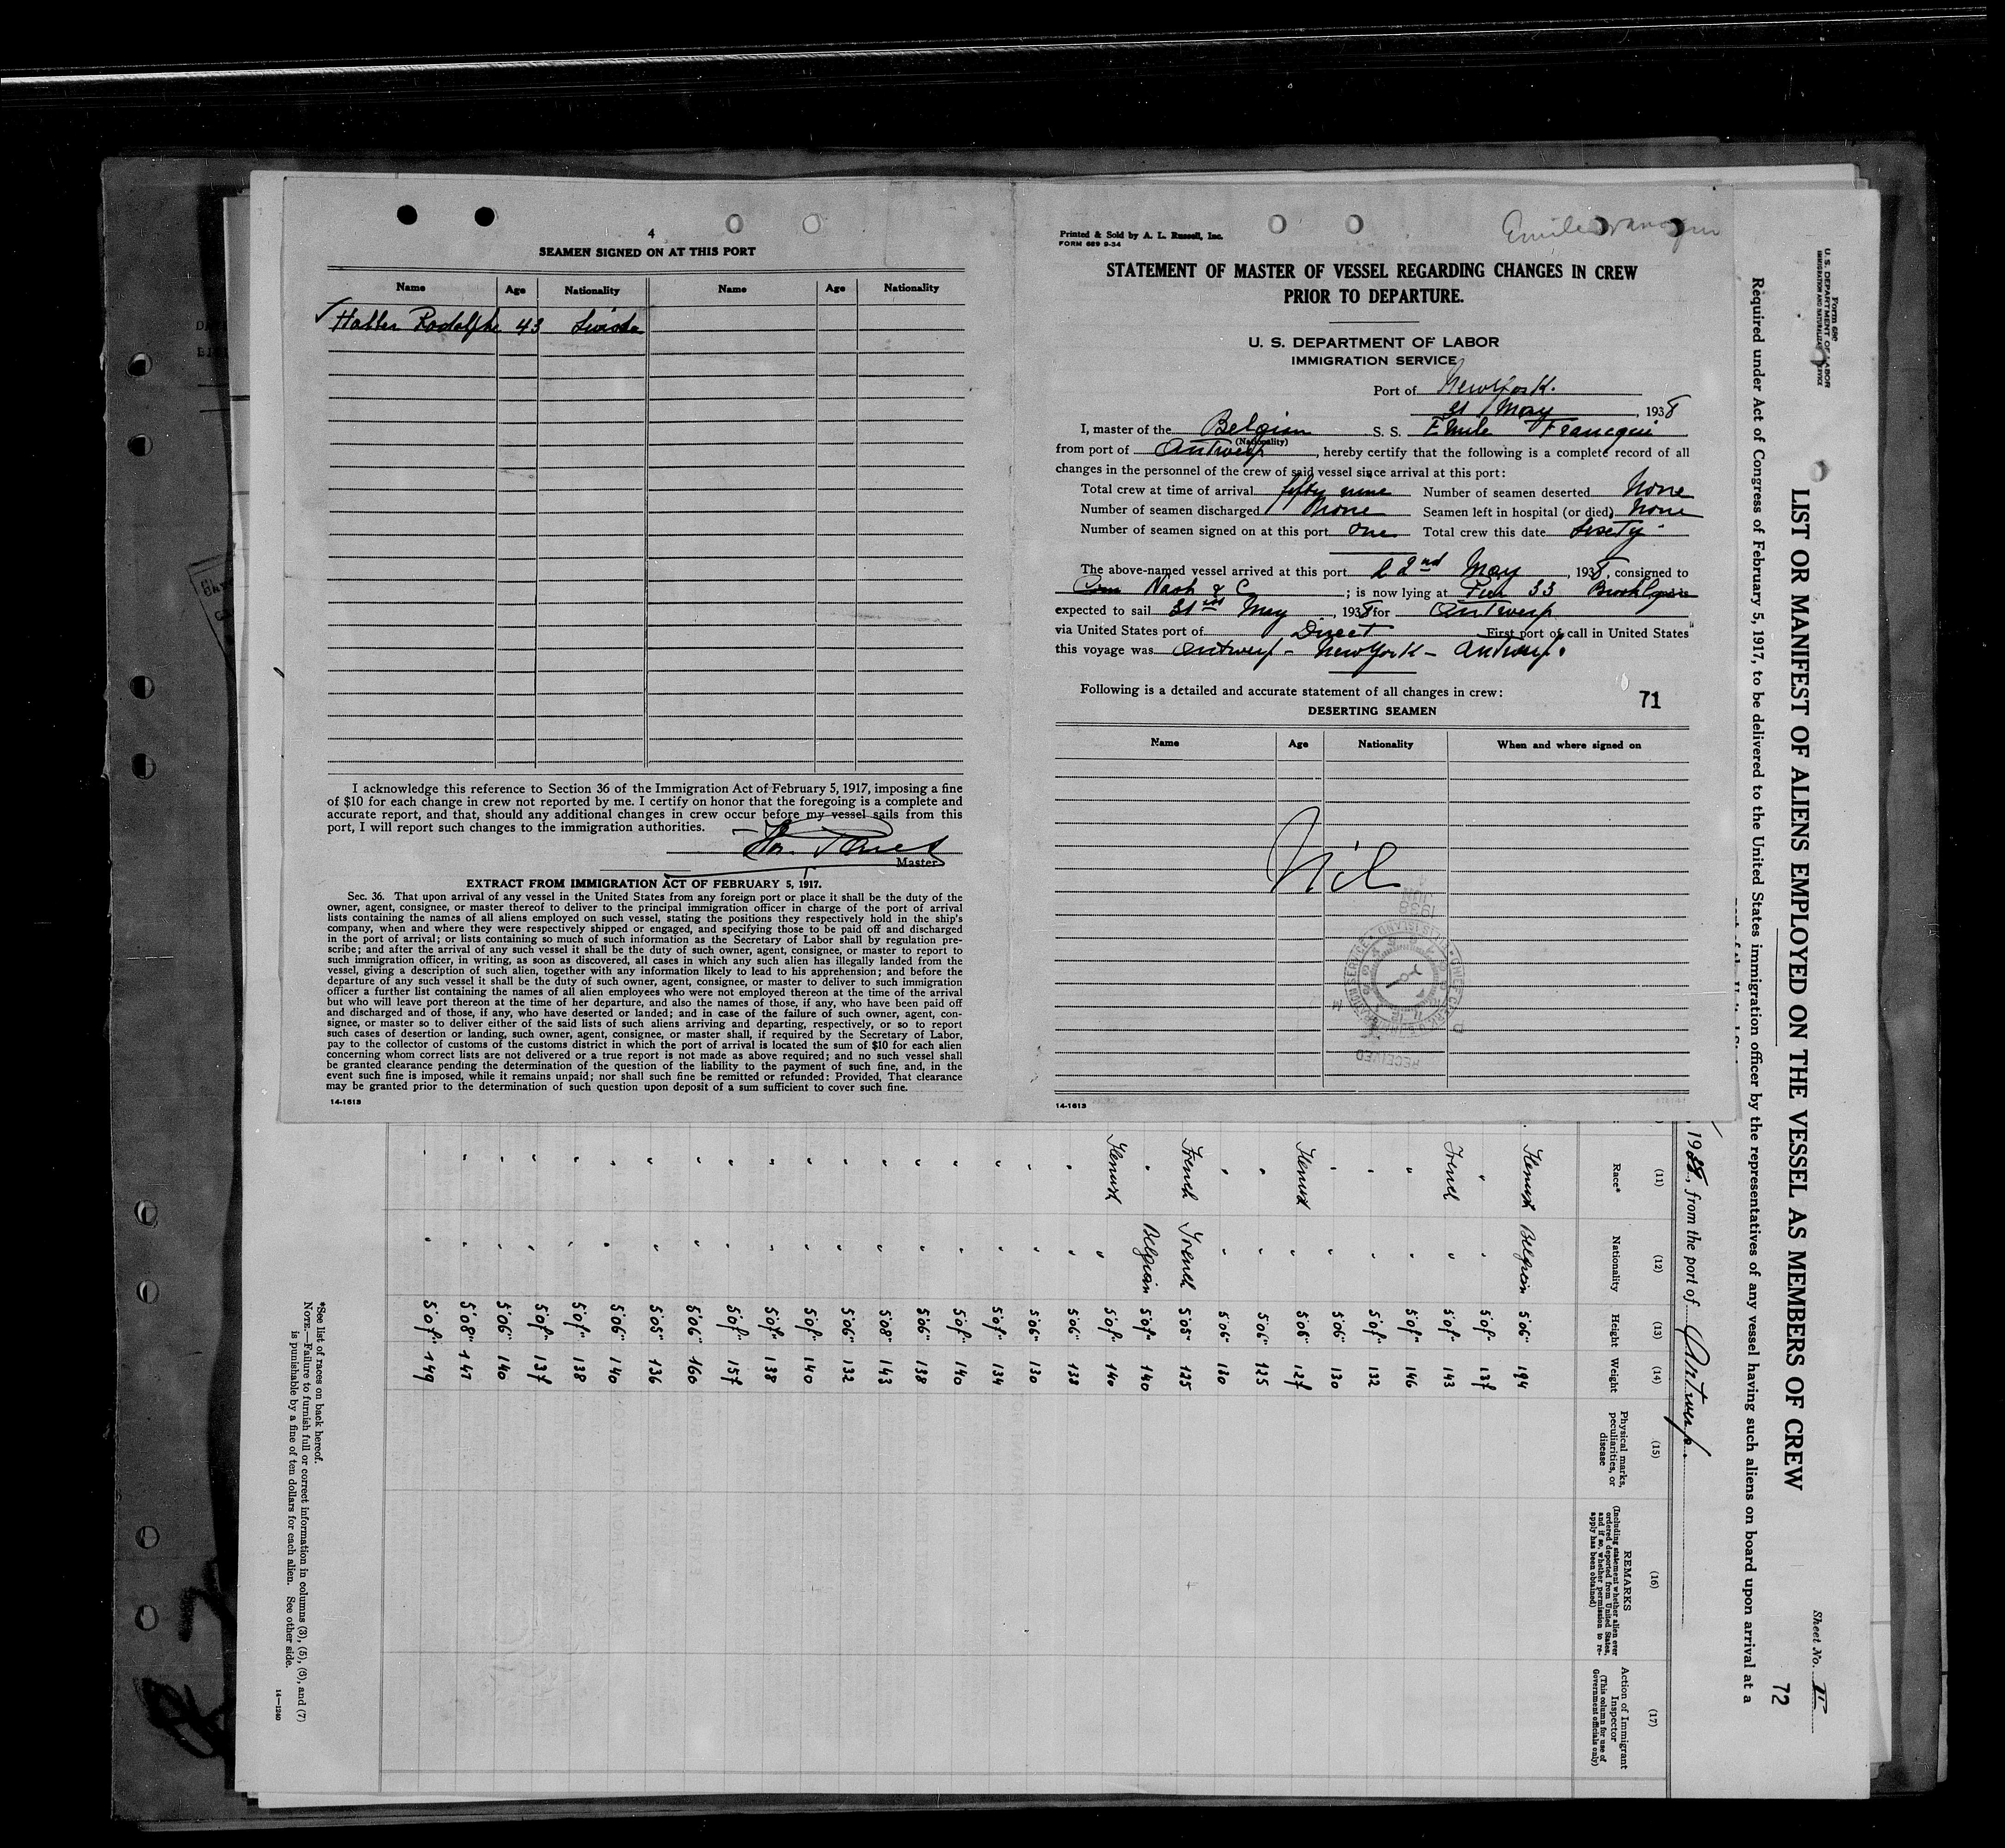 4
SEAMEN SIGNED ON AT THIS PORT
Name Age Nationality Name Age Nationality
✓ Haller Rodolphe 43
I acknowledge this reference to Section 36 of the Immigration Act of February 5, 1917, imposing a fine
of $10 for each change in crew not reported by me. I certify on honor that the foregoing is a complete and
accurate report, and that, should any additional changes in crew occur before my vessel sails from this
port, I will report such changes to the immigration authorities.
Master
EXTRACT FROM IMMIGRATION ACT OF FEBRUARY 5, 1917.
Sec. 36. That upon arrival of any vessel in the United States from any foreign port or place it shall be the duty of the
owner, agent, consignee, or master thereof to deliver to the principal immigration officer in charge of the port of arrival
lists containing the names of all aliens employed on such vessel, stating the positions they respectively hold in the ship's
company, when and where they were respectively shipped or engaged, and specifying those to be paid off and discharged
in the port of arrival; or lists containing so much of such information as the Secretary of Labor shall by regulation pre-
scribe; and after the arrival of any such vessel it shall be the duty of such owner, agent, consignee, or master to report to
such immigration officer, in writing, as soon as discovered, all cases in which any such alien has illegally landed from the
vessel, giving a description of such alien, together with any information likely to lead to his apprehension; and before the
departure of any such vessel it shall be the duty of such owner, agent, consignee, or master to deliver to such immigration
officer a further list containing the names of all alien employees who were not employed thereon at the time of the arrival
but who will leave port thereon at the time of her departure, and also the names of those, if any, who have been paid off
and discharged and of those, if any, who have deserted or landed; and in case of the failure of such owner, agent, con-
signee, or master so to deliver either of the said lists of such aliens arriving and departing, respectively, or so to report
such cases of desertion or landing, such owner, agent, consignee, or master shall, if required by the Secretary of Labor,
pay to the collector of customs of the customs district in which the port of arrival is located the sum of $10 for each alien
concerning whom correct lists are not delivered or a true report is not made as above required; and no such vessel shall
be granted clearance pending the determination of the question of the liability to the payment of such fine, and, in the
event such fine is imposed, while it remains unpaid; nor shall such fine be remitted or refunded: Provided, That clearance
may be granted prior to the determination of such question upon deposit of a sum sufficient to cover such fine.
14-1613
Printed & Sold by A. L. Russell, Inc.
FORM 689 9-34
Emile Francqui
STATEMENT OF MASTER OF VESSEL REGARDING CHANGES IN CREW
PRIOR TO DEPARTURE.
U. S. DEPARTMENT OF LABOR
IMMIGRATION SERVICE
Port of New York.
31 May, 1938
I, master of the Belgian S. S. Emile Francqui
(Nationality)
from port of Antwerp, hereby certify that the following is a complete record of all
changes in the personnel of the crew of said vessel since arrival at this port:
Total crew at time of arrival fifty nine Number of seamen deserted None
Number of seamen discharged None Seamen left in hospital (or died) None
Number of seamen signed on at this port one Total crew this date
The above-named vessel arrived at this port 22nd May, 1938, consigned to
Nash & C; is now lying at Pier 33 Brooklyn
expected to sail 31 May, 1938 for Antwerp
via United States port of Direct First port of call in United States
this voyage was Antwerp - New York - Antwerp.
Following is a detailed and accurate statement of all changes in crew:
71
DESERTING SEAMEN
Name Age Nationality When and where signed on
Nil
14-1613
Form 689
U. S. DEPARTMENT OF LABOR
IMMIGRATION AND NATURALIZATION SERVICE
Sheet No. II
72
LIST OR MANIFEST OF ALIENS EMPLOYED ON THE VESSEL AS MEMBERS OF CREW
Required under Act of Congress of February 5, 1917, to be delivered to the United States immigration officer by the representatives of any vessel having such aliens on board upon arrival at a
1938, from the port of Antwerp.
(11) (12) (13) (14) (15) (16) (17)
Race* Nationality Height Weight Physical marks, peculiarities, or disease
REMARKS
(Including statement whether alien ever ordered deported from United States, and if so, whether permission to re-apply has been obtained)
Action of Immigrant Inspector
(This column for use of Government officials only)
Flemish Belgian 5'06" 194
" " 5'07" 137
French " 5'07" 143
" " 5'07" 146
" " 5'07" 132
" " 5'06" 130
Flemish " 5'06" 127
" " 5'06" 125
" " 5'06" 130
French French 5'05" 125
" Belgian 5'07" 140
Flemish " 5'07" 140
" " 5'06" 138
" " 5'06" 130
" " 5'07" 134
" " 5'07" 140
" " 5'06" 138
" " 5'08" 143
" " 5'06" 132
" " 5'07" 140
" " 5'07" 138
" " 5'07" 157
" " 5'06" 160
" " 5'05" 136
" " 5'06" 140
" " 5'07" 138
" " 5'07" 137
" " 5'06" 140
" " 5'08" 147
" " 5'07" 149
*See list of races on back hereof.
NOTE.—Failure to furnish full or correct information in columns (3), (5), (6), and (7)
is punishable by a fine of ten dollars for each alien. See other side.
14—1240